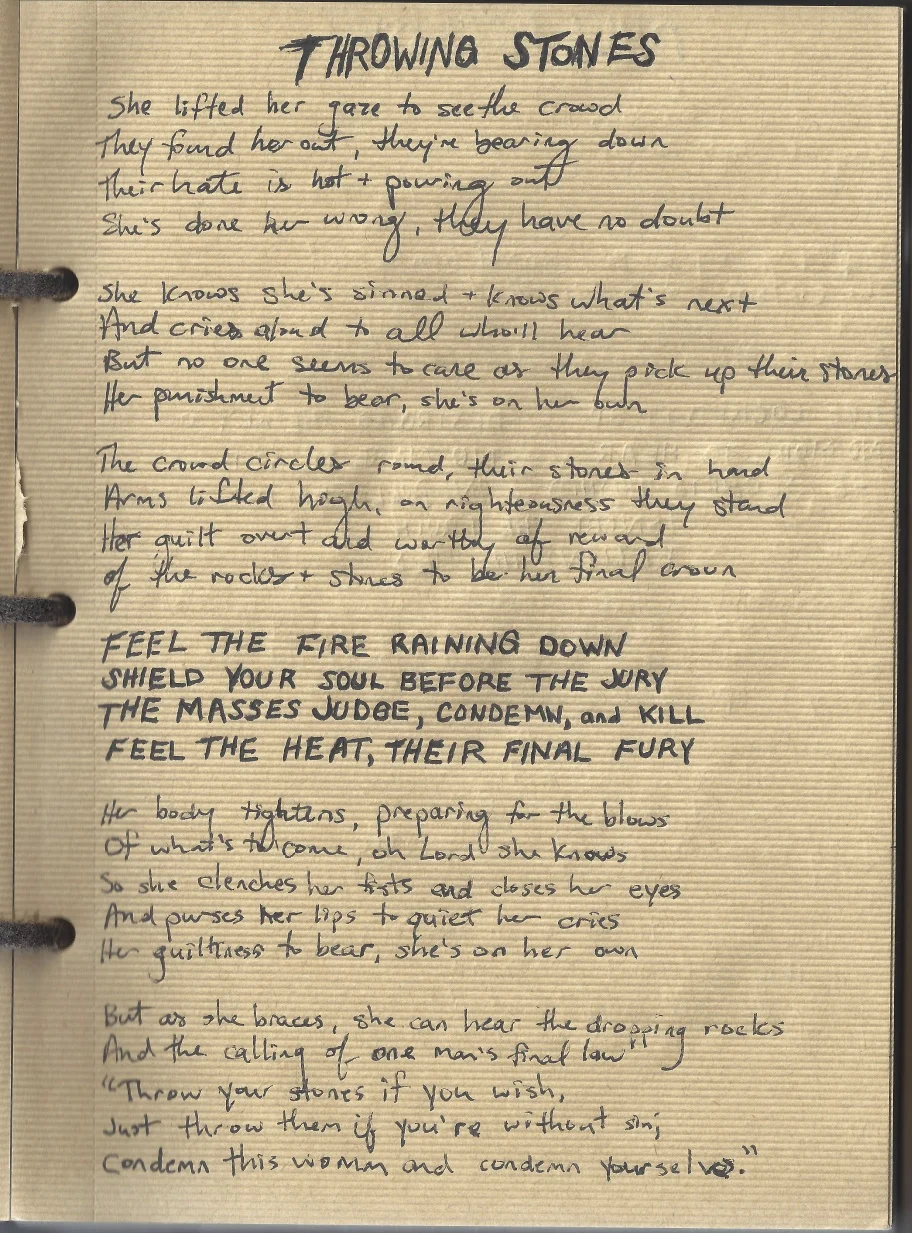 THROWING STONES
She lifted her gaze to see the crowd
They found her out, they're bearing down
Their hate is hot + pouring out
She's done her wrong, they have no doubt
She knows she's sinned + knows what's next
And cries aloud to all who'll hear
But no one seems to care as they pick up their stones
Her punishment to bear, she's on her own
The crowd circles round, their stones in hand
Arms lifted high, on righteousness they stand
Her guilt overt and worthy of reward
of the rocks + stones to be her final crown
FEEL THE FIRE RAINING DOWN
SHIELD YOUR SOUL BEFORE THE JURY
THE MASSES JUDGE, CONDEMN, and KILL
FEEL THE HEAT, THEIR FINAL FURY
Her body tightens, preparing for the blows
Of what's to come, oh Lord she knows
So she clenches her fists and closes her eyes
And purses her lips to quiet her cries
Her guiltiness to bear, she's on her own
But as she braces, she can hear the dropping rocks
And the calling of one man's final law"
"Throw your stones if you wish,
Just throw them if you're without sin;
Condemn this woman and condemn yourselves."